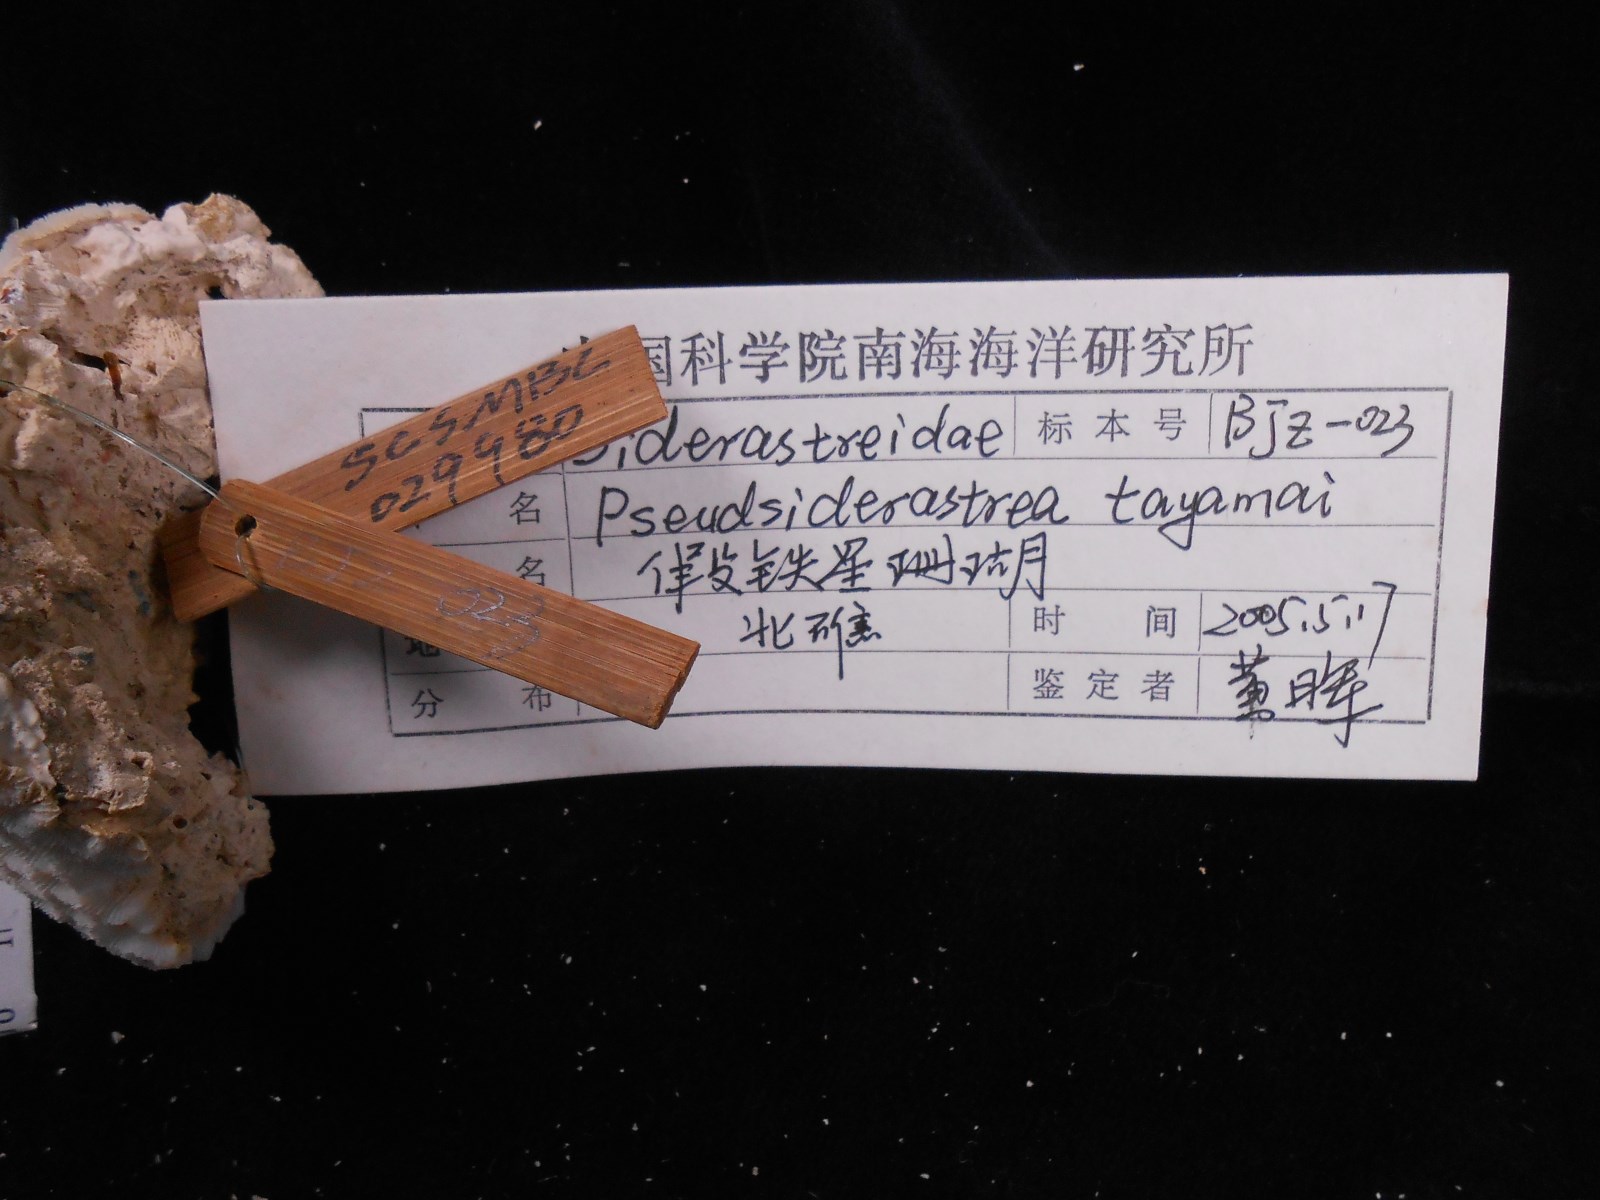 国科学院南海海洋研究所
Siderastreidae 标本号 BJZ-023
名 Pseudsiderastrea tayamai
名 假铁星珊瑚
地 北礁 时间 2005.5.17
分布 鉴定者 黄晖
SCSMBC
029980
023